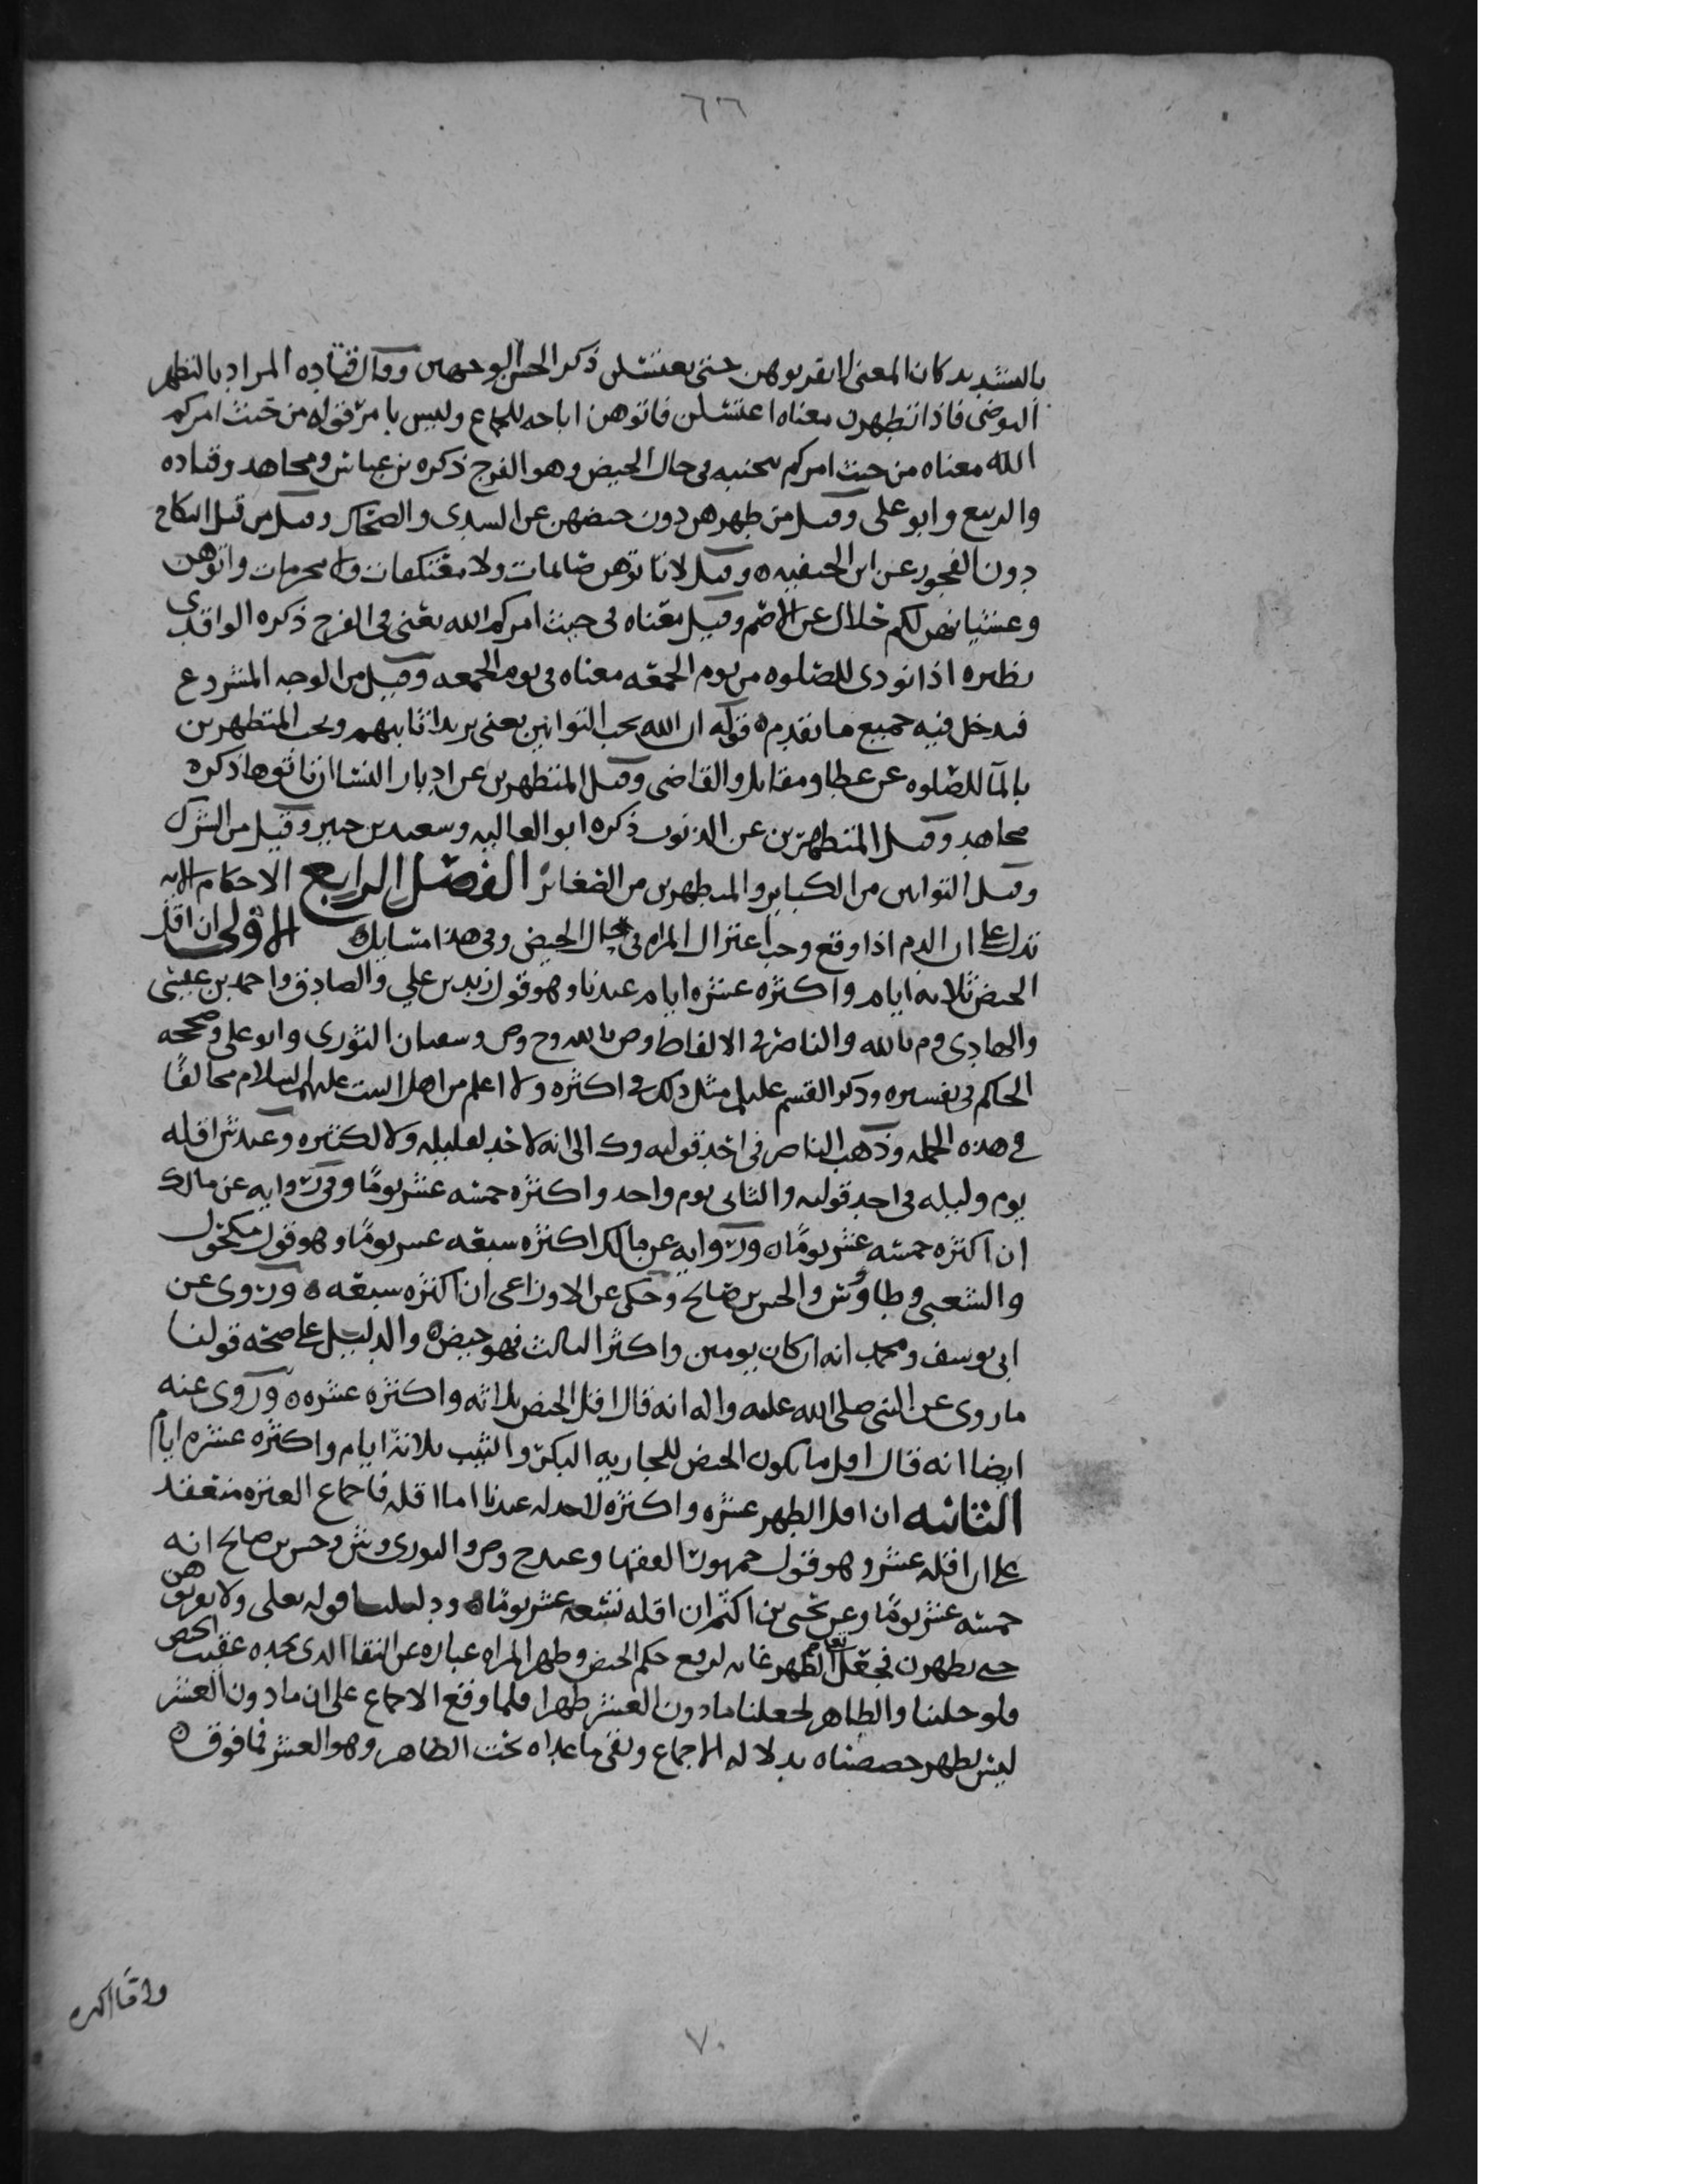 ٦٦
بالتشديد كان المعنى لا تقربوهن حتى يغتسلن ذكر الحسن الوجهين وقال قتاده المراد بالتطهر
التوضي فاذا تطهرن معناه اغتسلن فاتوهن اباحه للجماع وليس بامر قوله من حيث امركم
الله معناه من حيث امركم بتجنبه في حال الحيض وهو الفرج ذكره بن عباس ومجاهد وقتاده
والربيع وابو علي وقيل من طهرهن دون حيضهن عن السدي والضحاك وقيل من قبل النكاح
دون الفجور عن ابن الحنفيه ه وقيل لا تاتوهن صايمات ولا معتكفات ولا محرمات واتوهن
وغشيانهن لكم حلال عن الاصم وقيل معناه في حيث امركم الله يعني في الفرج ذكره الواقدي
نظيره اذا نودى للصلوه من يوم الجمعه معناه في يوم الجمعه وقيل من الوجه المشروع
فيدخل فيه جميع ما تقدم ه قوله ان الله يحب التوابين يعني يريد اثابتهم ويحب المتطهرين
بالمآ للصلوه عن عطا ومقاتل والقاضي وقيل المتطهرين عن ادبار النسا ان ياتوها ذكره
مجاهد وقيل المتطهرين عن الذنوب ذكره ابو العاليه وسعيد بن جبير وقيل من الشرك
وقيل التوابين من الكباير والمتطهرين من الصغاير الفصل الرابع الاحكام الايه
تدل على ان الدم اذا وقع وجب اعتزال المراه في حال الحيض وفي هذا مسايل ه الاولى ان اقل
الحيض ثلاثه ايام واكثره عشره ايام عندنا وهو قول زيد بن علي والصادق واحمد بن عيسى
والهادي وم بالله والناصر في الالفاظ وص بالله وح وص وسفيان الثوري وابو علي وصححه
الحاكم في تفسيره وذكر القسم عليلم مثل ذلك في اكثره ولا اعلم من اهل البيت عليهم السلام مخالفًا
في هذه الجمله وذهب الناصر في احد قوليه وك الى انه لا حد لقليله ولا لكثيره وعند ش اقله
يوم وليله في احد قوليه والثاني يوم واحد واكثره خمسه عشر يومًا وفي روايه عن مالك
ان اكثره خمسه عشر يومًا ه وروايه عن مالك اكثره سبعه عشر يومًا وهو قول مكحول
والشعبي وطاووس والحسن بن صالح وحكى عن الاوزاعي ان اكثره سبعه ه وروى عن
ابي يوسف ومحمد انه ان كان يومين واكثر الثالث فهو حيض ه والدليل على صحه قولنا
ما روى عن النبي صلى الله عليه واله انه قال اقل الحيض ثلاثه واكثره عشره ه وروى عنه
ايضا انه قال اقل ما يكون الحيض للجاريه البكر والثيب ثلاثة ايام واكثره عشره ايام
الثانيه ان اقل الطهر عشره واكثره لا حد له عندنا اما اقله فاجماع العتره منعقد
على ان اقله عشر وهو قول جمهور الفقها وعند ح وص والثوري وش وحسن بن صالح انه
خمسه عشر يومًا وعن يحيى بن اكثم ان اقله تسعه عشر يومًا ه ودليلنا قوله تعلى ولا تقربوهن
حتى يطهرن فجعل تعا الطهر غايه لرفع حكم الحيض وطهر المراه عباره عن النقا الذي تجده عقيب الحيض
فلو خلينا والظاهر لجعلنا ما دون العشر طهرا فلما وقع الاجماع على ان ما دون العشر
ليس بطهر خصصناه بدلاله الاجماع وبقي ما عداه تحت الظاهر وهو العشر فما فوق ه
واما اكثره
٧٠